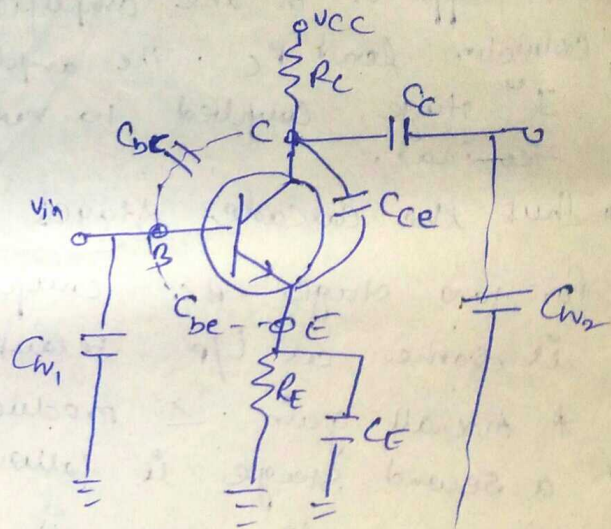 VCC
RC
CC
Cbc
C
Vin
Cce
B
Cbe
E
CW1
CW2
RE
CE